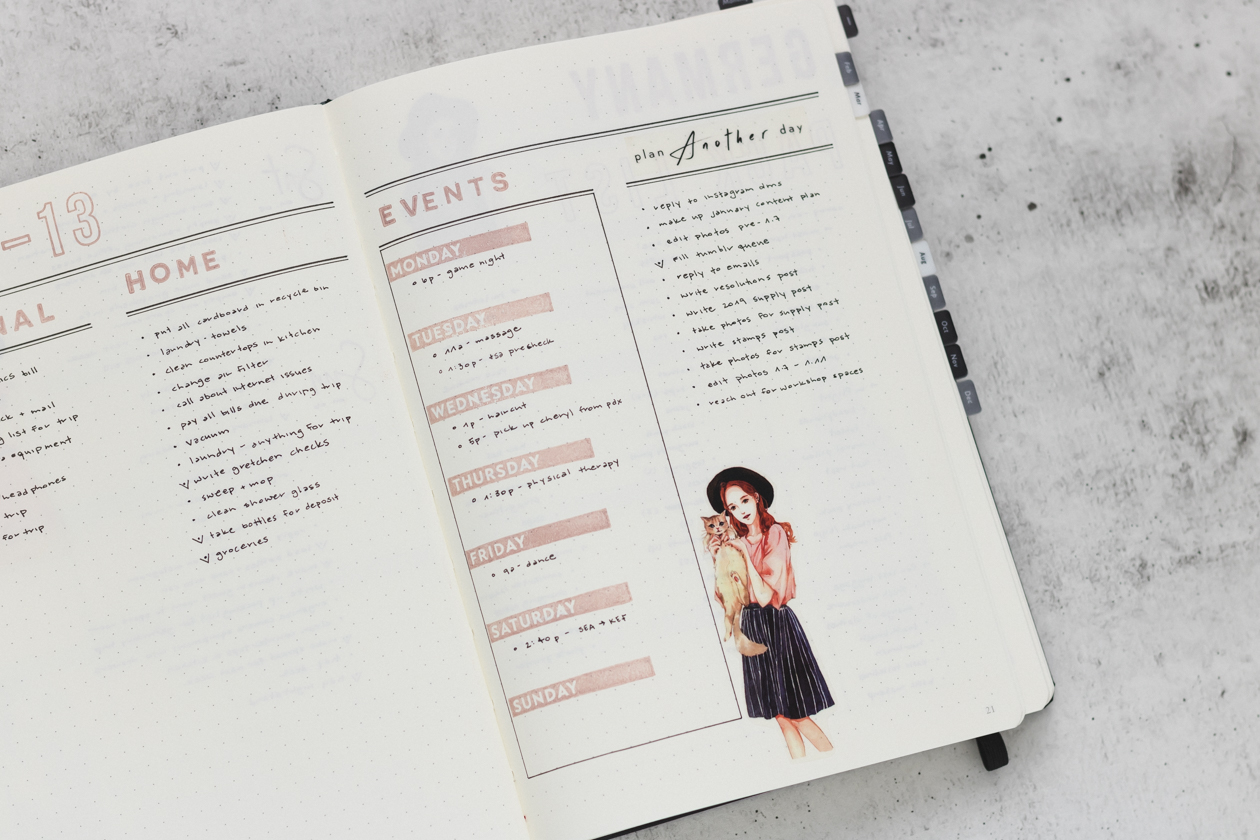 -13
NAL
ics bill
ck + mail
g list for trip
a equipment
headphones
trip
for trip
HOME
put all cardboard in recycle bin
laundry - towels
clean countertops in kitchen
change air filter
call about internet issues
pay all bills due during trip
vacuum
laundry - anything for trip
write gretchen checks
sweep + mop
clean shower glass
take bottles for deposit
groceries
GERMANY
EVENTS
MONDAY
6p - game night
TUESDAY
11a - massage
1:30p - tsa precheck
WEDNESDAY
1p - haircut
5p - pick up cheryl from pdx
THURSDAY
1:30p - physical therapy
FRIDAY
9a - dance
SATURDAY
2:40p - SEA → KEF
SUNDAY
plan Another day
reply to instagram dms
make up january content plan
edit photos pre-1.7
fill tumblr queue
reply to emails
write resolutions post
write 2019 supply post
take photos for supply post
write stamps post
take photos for stamps post
edit photos 1.7 - 1.11
reach out for workshop spaces
21
Feb
Mar
Apr
May
Jun
Jul
Aug
Sep
Oct
Nov
Dec